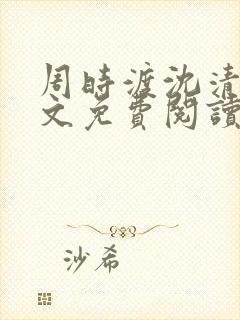 周時渡沈清
文免費閱讀
沙希